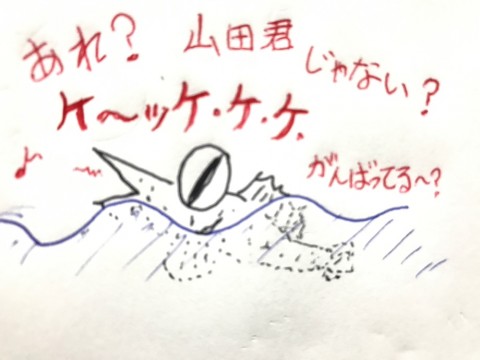 あれ? 山田君 じゃない?
ケ〜ッケ・ケ・ケ.
がんばってる〜?